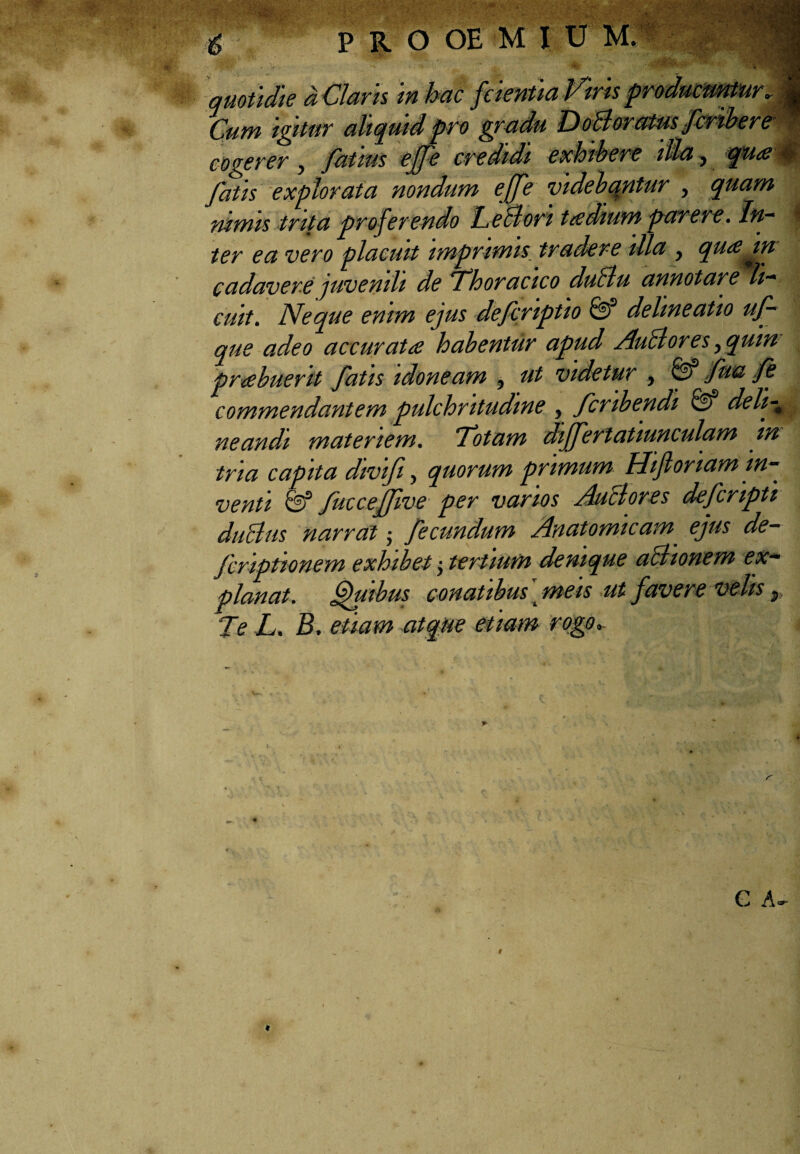 6 PROOEMIUM.
quotidie à Claris in hac ſcientia Viris producuntur.
Cum igitur aliquid pro gradu Doctoratus ſcribere
cogerer, ſatius eſſe credidi exhibere illa, quæ
ſatis explorata nondum eſſe videbantur, quam
nimis trita proferendo Lectori tædium parere. In-
ter ea vero placuit imprimis tradere illa, quæ in
cadavere juvenili de Thoracico ductu annotare li-
cuit. Neque enim ejus deſcriptio & delineatio uſ-
que adeo accuratæ habentur apud Auctores, quin
præbuerit ſatis idoneam, ut videtur, & ſua ſe
commendantem pulchritudine, ſcribendi & deli-
neandi materiem. Totam diſſertatiunculam in
tria capita diviſi, quorum primum Hiſtoriam in-
venti & ſucceſſive per varios Auctores deſcripti
ductus narrat; ſecundum Anatomicam ejus de-
ſcriptionem exhibet; tertium denique actionem ex-
planat. Quibus conatibus meis ut favere velis,
Te L. B. etiam atque etiam rogo.
C A-